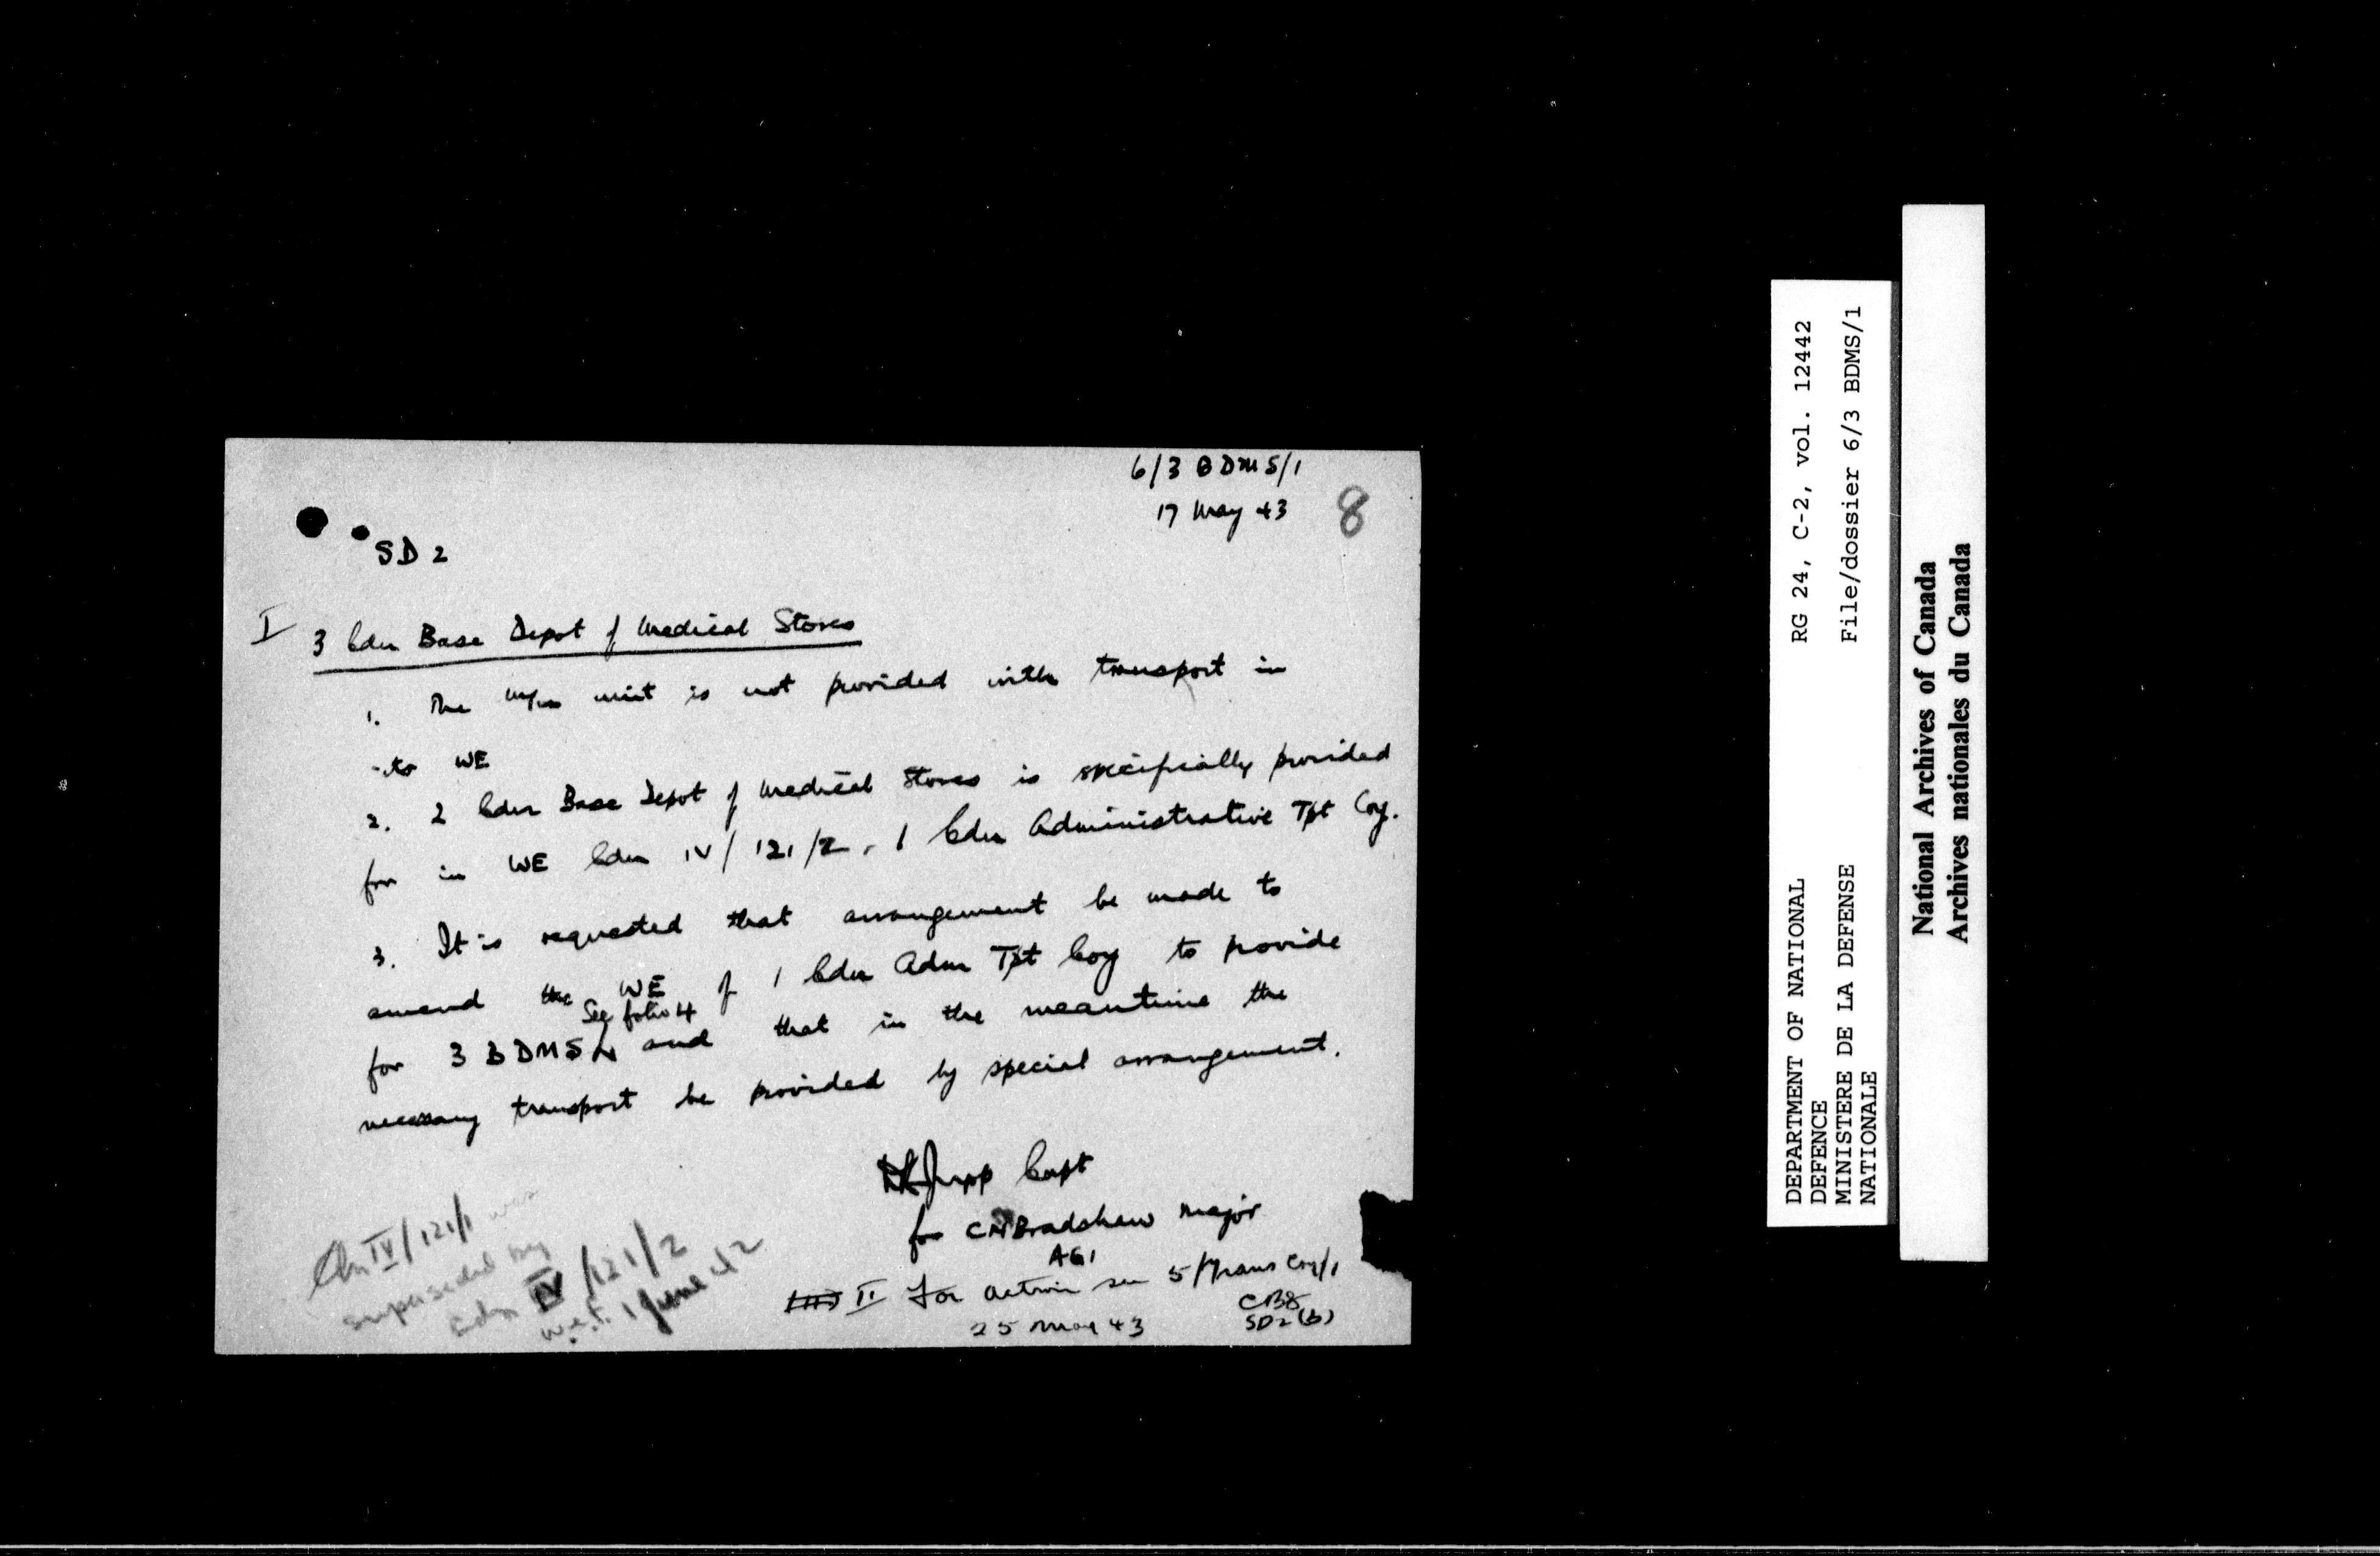 6/3 BDMS/1
17 May 43
8
SD 2
I
3 Cdn Base Depot of Medical Stores
1. The m/n unit is not provided with transport in
its WE
2. 2 Cdn Base Depot of Medical Stores is specifically provided
for in WE Cdn IV/121/2, 1 Cdn Administrative Tpt Coy.
3. It is requested that arrangement be made to
amend the WE of 1 Cdn Adm Tpt Coy to provide
See folio 4
for 3 BDMS and that in the meantime the
necessary transport be provided by special arrangement.
Jupp Capt
for CN Bradshaw Major
AG1
II For action see 5/Trans Coy/1
25 May 43
SD2(b)
Cdn IV/121/1 was
superseded by
Cdn IV/121/2
w.e.f. 1 June 42
DEPARTMENT OF NATIONAL
DEFENCE
MINISTERE DE LA DEFENSE
NATIONALE
RG 24, C-2, vol. 12442
File/dossier 6/3 BDMS/1
National Archives of Canada
Archives nationales du Canada